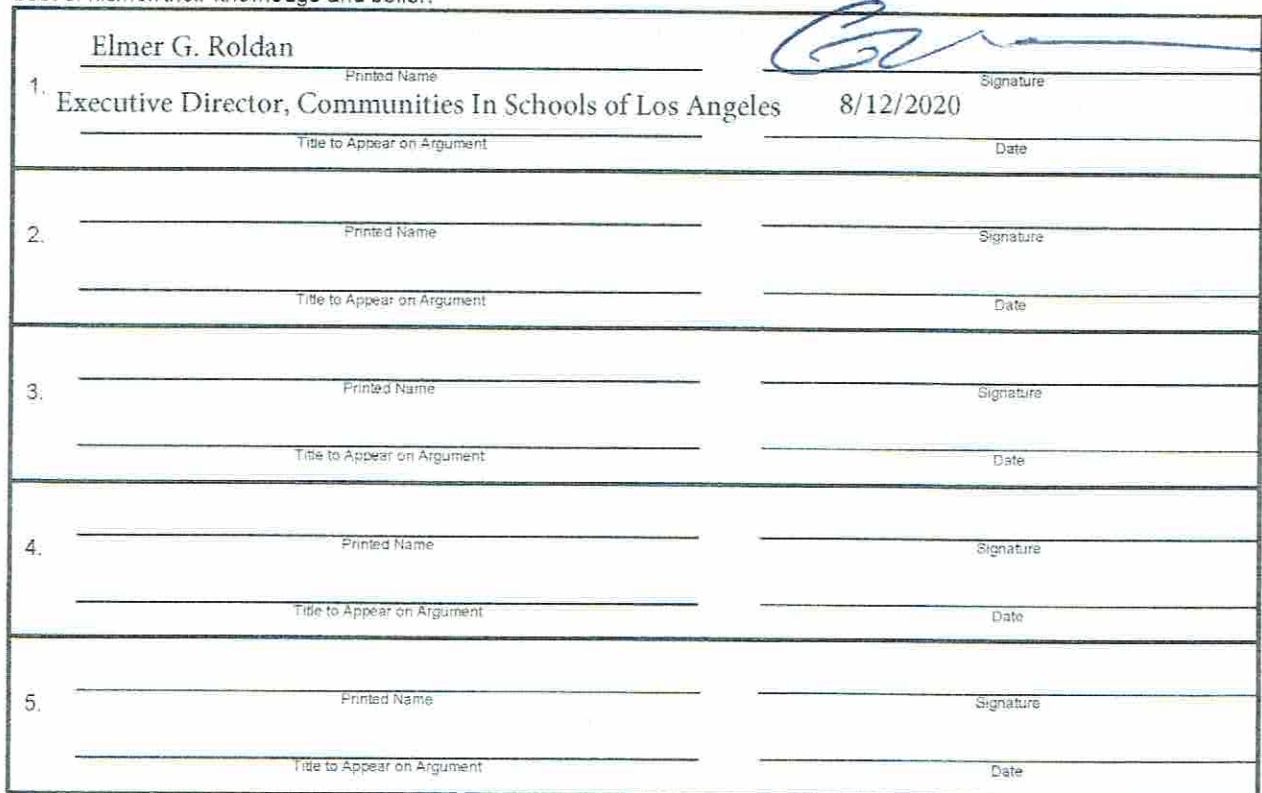 best of his/her/their knowledge and belief.
Elmer G. Roldan
Printed Name Signature
1.
Executive Director, Communities In Schools of Los Angeles 8/12/2020
Title to Appear on Argument Date
2.
Printed Name Signature
Title to Appear on Argument Date
3.
Printed Name Signature
Title to Appear on Argument Date
4.
Printed Name Signature
Title to Appear on Argument Date
5.
Printed Name Signature
Title to Appear on Argument Date